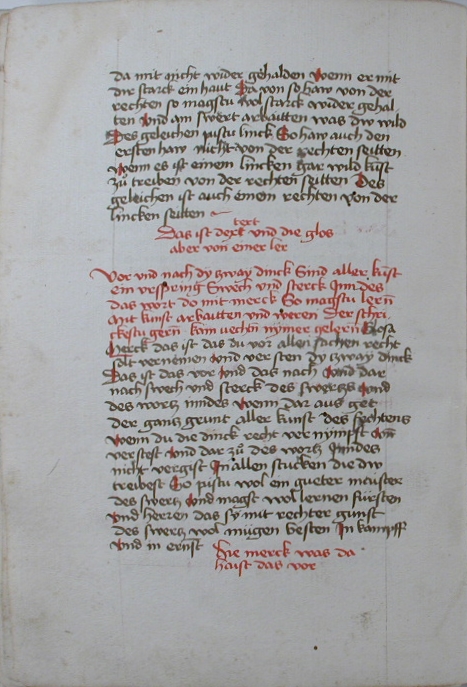 da mit nicht wider gehalden Wenn er mit
dir starck ein haut Da von so haw von der
rechten so magstu wol starck wider gehal
ten Vnd am swert arbaitten was dw wild
Des geleichen pistu linck So haw auch den
ersten haw nicht von der rechten seitten
Wenn es ist einem lincken gar wild kúst
zů treiben von der rechten seitten Des
geleichen ist auch einem rechten von der
lincken seitten
tert
Das ist der vnd die glos
aber von einer ler
Vor vnd nach dy zway dinck Sind aller kúst
ein vrspring Swech vnd sterck Inndes
das wort do mit merck So magstu lern
mit kunst arbaitten vnd weren Der schri
ckestu gern kain vechtñ nÿmer gelern Glosa
Merck das ist das du vor allen sachen recht
solt vernemen Vnd versten dÿ zway dinck
Das ist das vor Vnd das nach Vnd dar
nach swech vnd sterck des swertzs Vnd
des wortz inndes Wenn dar aus get
der gantz grunt aller kunst des fechtens
Wenn du die dinck recht vernÿmpst Vñ
verstest Vnd dar zů des wortz Inndes
nicht vergist In allen stucken die dw
treibest So pistu wol ein gueter maister
des swertz Vnd magst wol lernen fürsten
vnd herren das sÿ mit rechter gunst
des swertz wol mügen besten In kampff
Vnd in ernst Hie merck was da
haist das vor